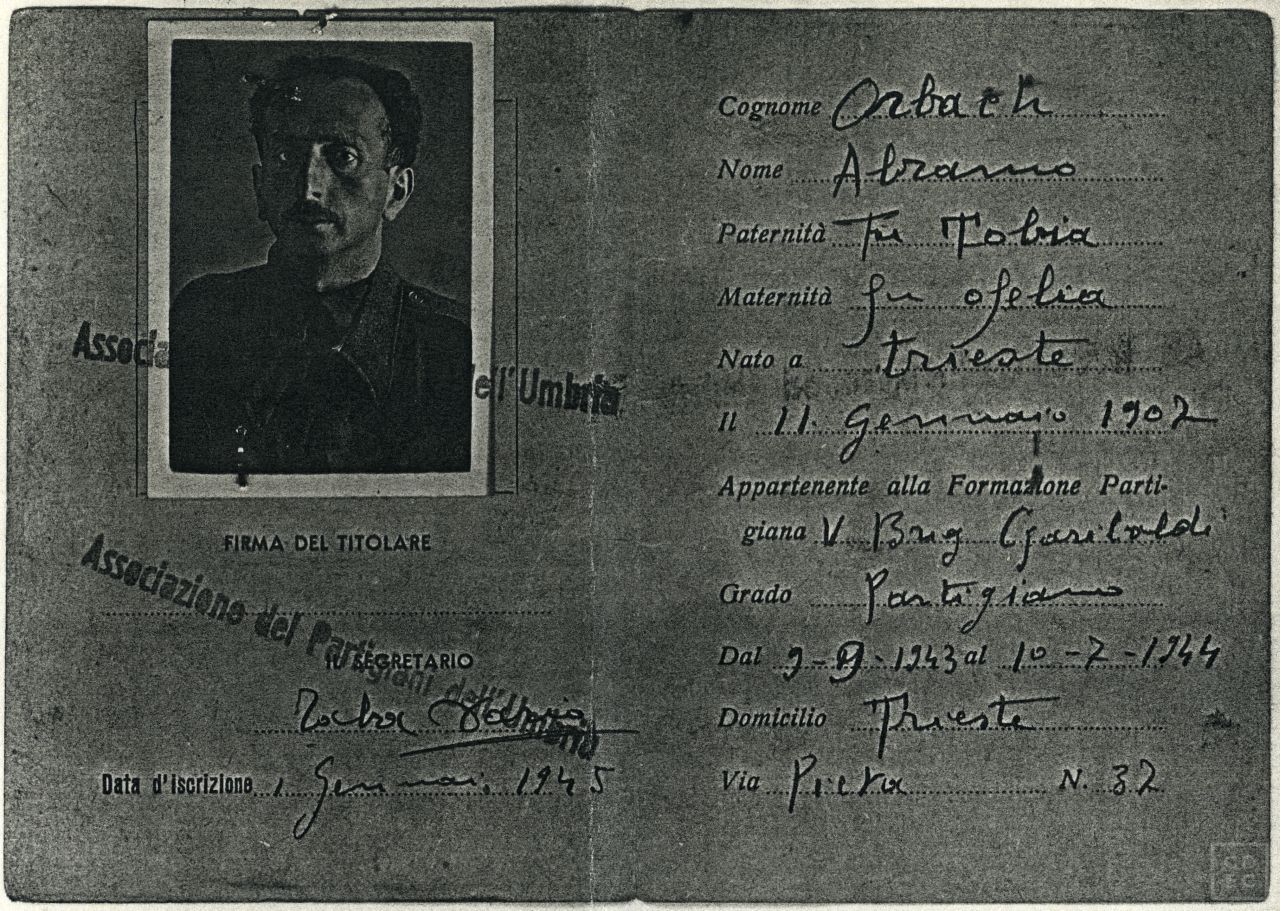 Associa ell'Umbria
FIRMA DEL TITOLARE
Associazione dei Partigiani dell'Umbria
IL SEGRETARIO
Data d'iscrizione 1 Gennaio 1945
Cognome Orbach
Nome Abramo
Paternità Fu Tobia
Maternità fu Ofelia
Nato a Trieste
Il 11 Gennaio 1902
Appartenente alla Formazione Parti-
giana V Brig Garibaldi
Grado Partigiano
Dal 9-9-1943 al 10-7-1944
Domicilio Trieste
Via N. 32
CDEC